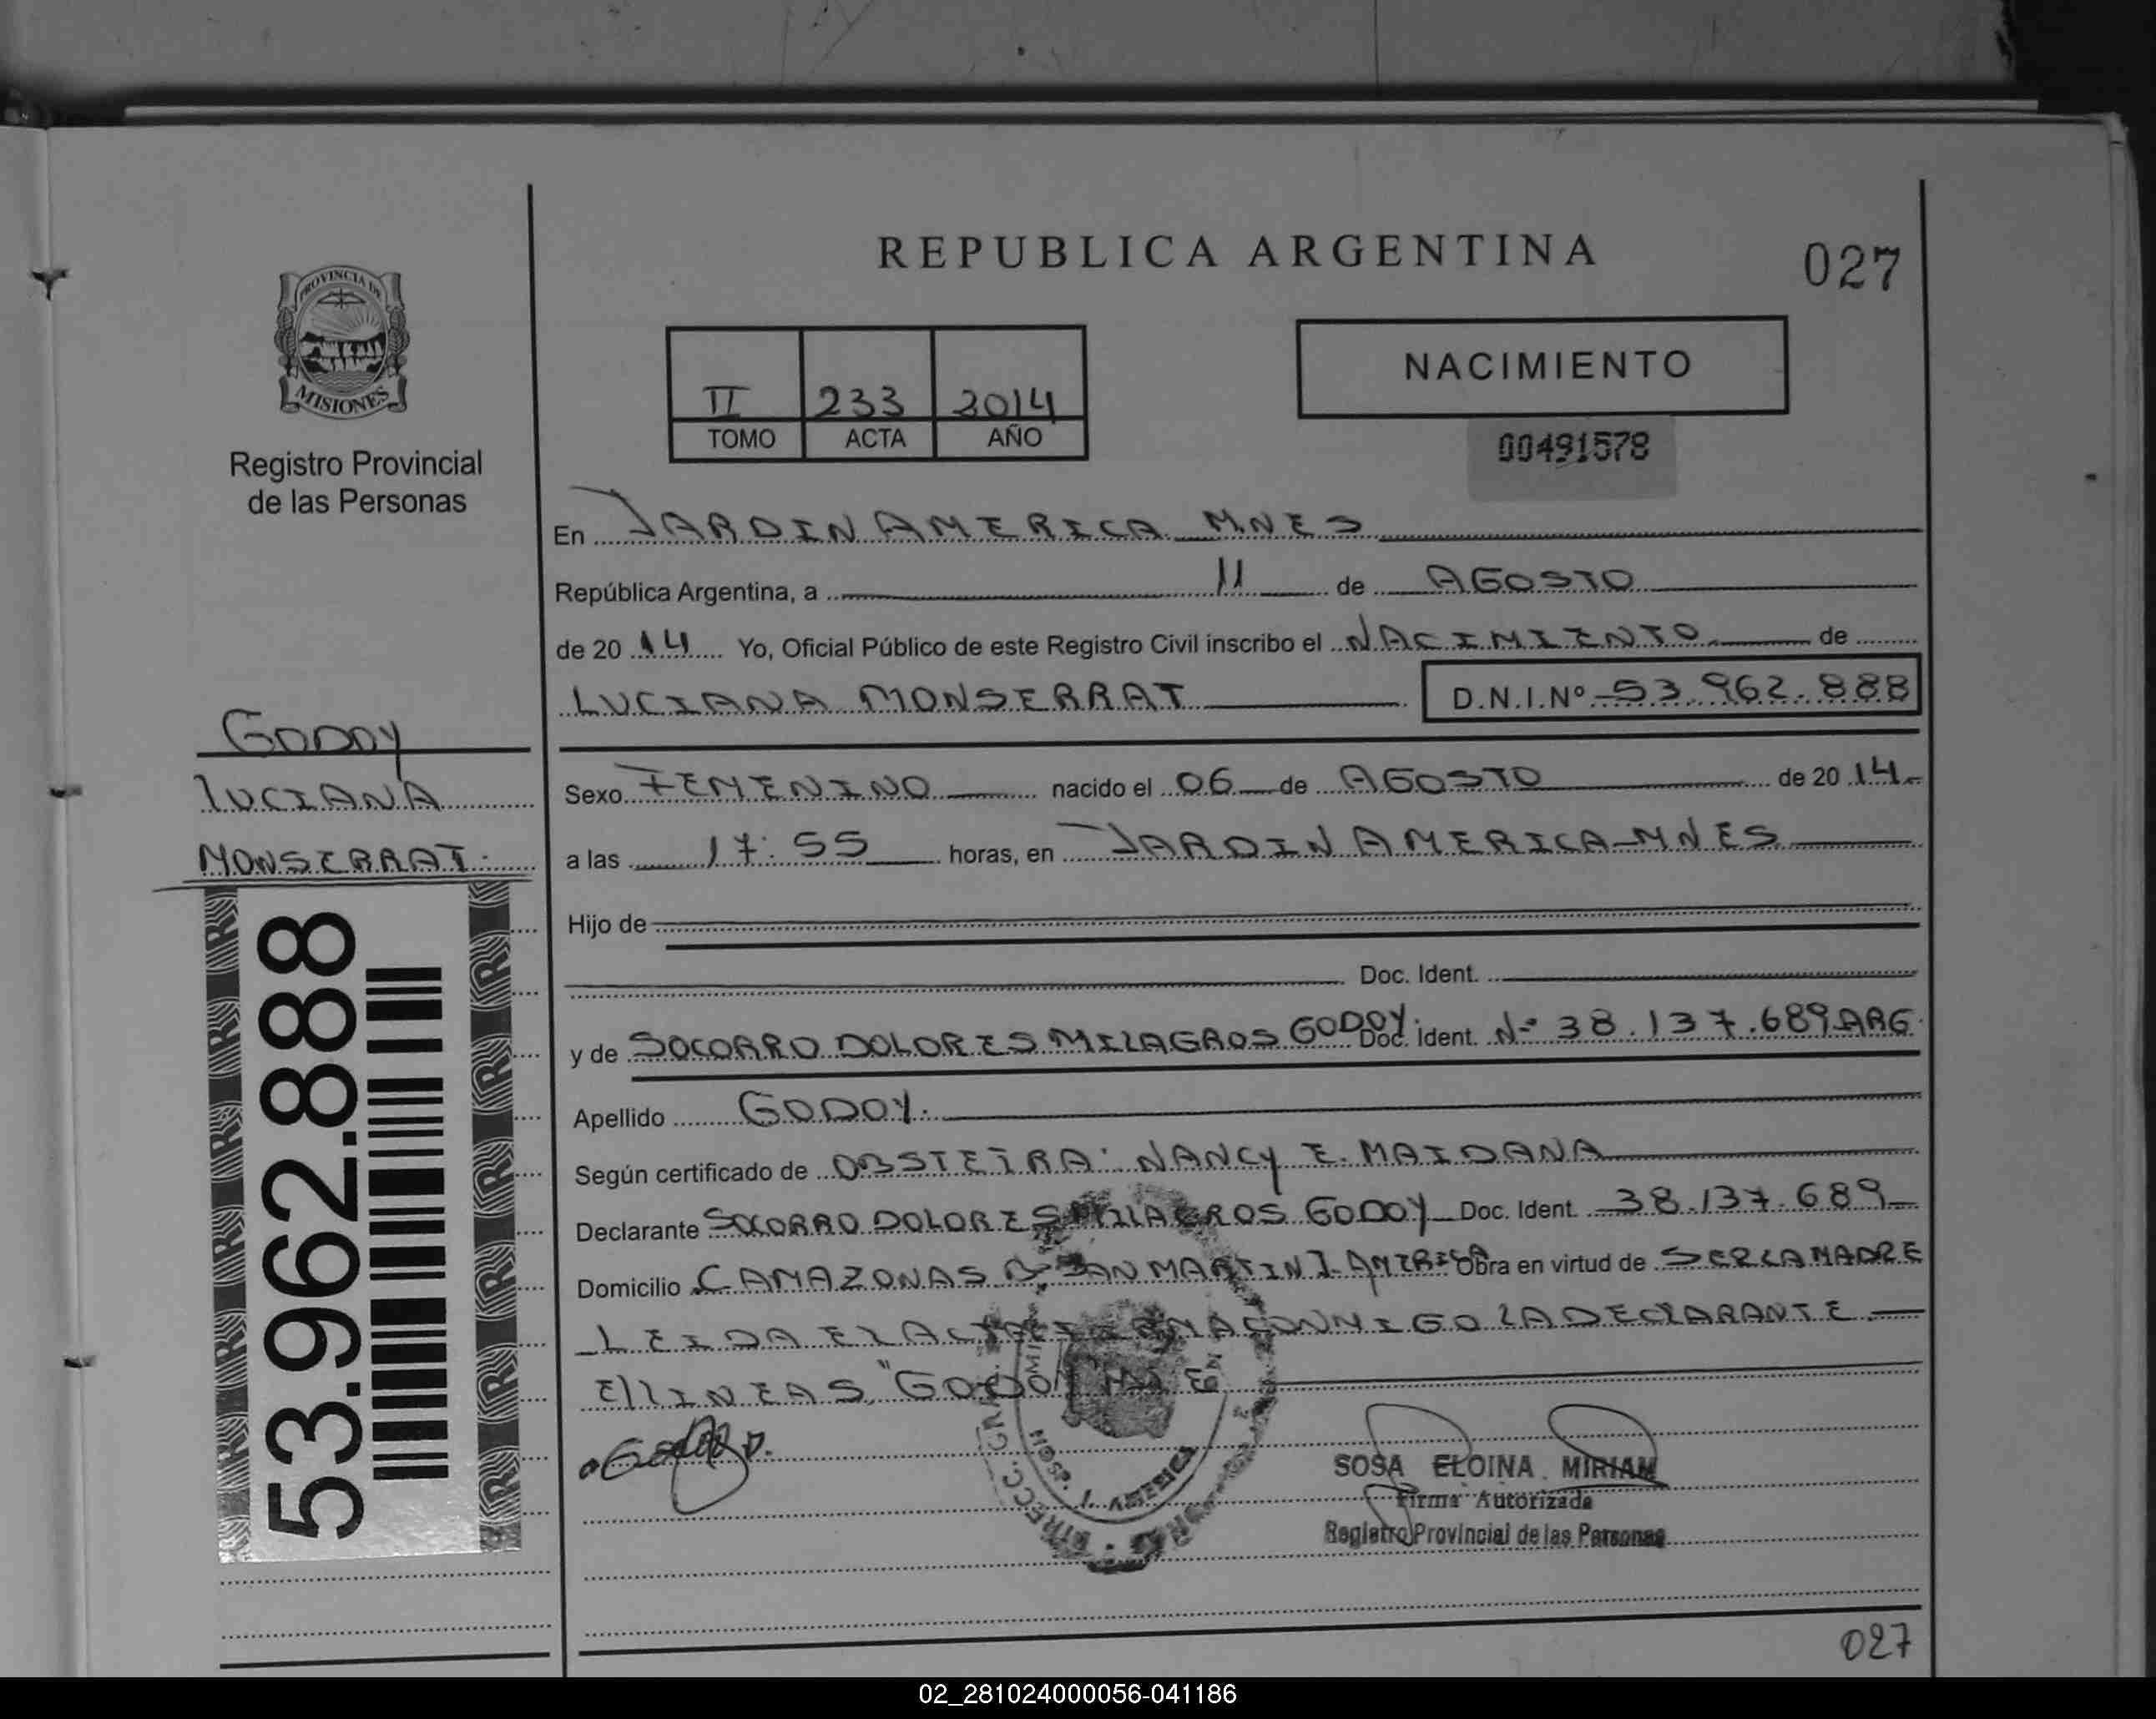 REPUBLICA ARGENTINA
027
PROVINCIA DE
MISIONES
Registro Provincial
de las Personas
II 233 2014
TOMO ACTA AÑO
NACIMIENTO
00491578
En JARDIN AMERICA MNES
República Argentina, a 11 de AGOSTO
de 20 14 Yo, Oficial Público de este Registro Civil inscribo el NACIMIENTO de
LUCIANA MONSERRAT D.N.I.Nº 53.962.888
GODOY
LUCIANA
MONSERRAT.
Sexo FEMENINO nacido el 06 de AGOSTO de 20 14
a las 17:55 horas, en JARDIN AMERICA-MNES
Hijo de
Doc. Ident.
y de SOCORRO DOLORES MILAGROS GODOY. Doc. Ident. Nº 38.137.689 ARG
Apellido GODOY.
Según certificado de OBSTETRA: NANCY E. MAIDANA
Declarante SOCORRO DOLORES MILAGROS GODOY Doc. Ident. 38.137.689
Domicilio C AMAZONAS Bº SAN MARTIN J. AMERICA Obra en virtud de SER LA MADRE
LEIDA EL ACTA FIRMA CONMIGO LA DECLARANTE.
E/LINEAS "GODOY
53.962.888
HOSP. J. AMERICA
SOSA ELOINA MIRIAM
Firma Autorizada
Registro Provincial de las Personas
027
02_281024000056-041186